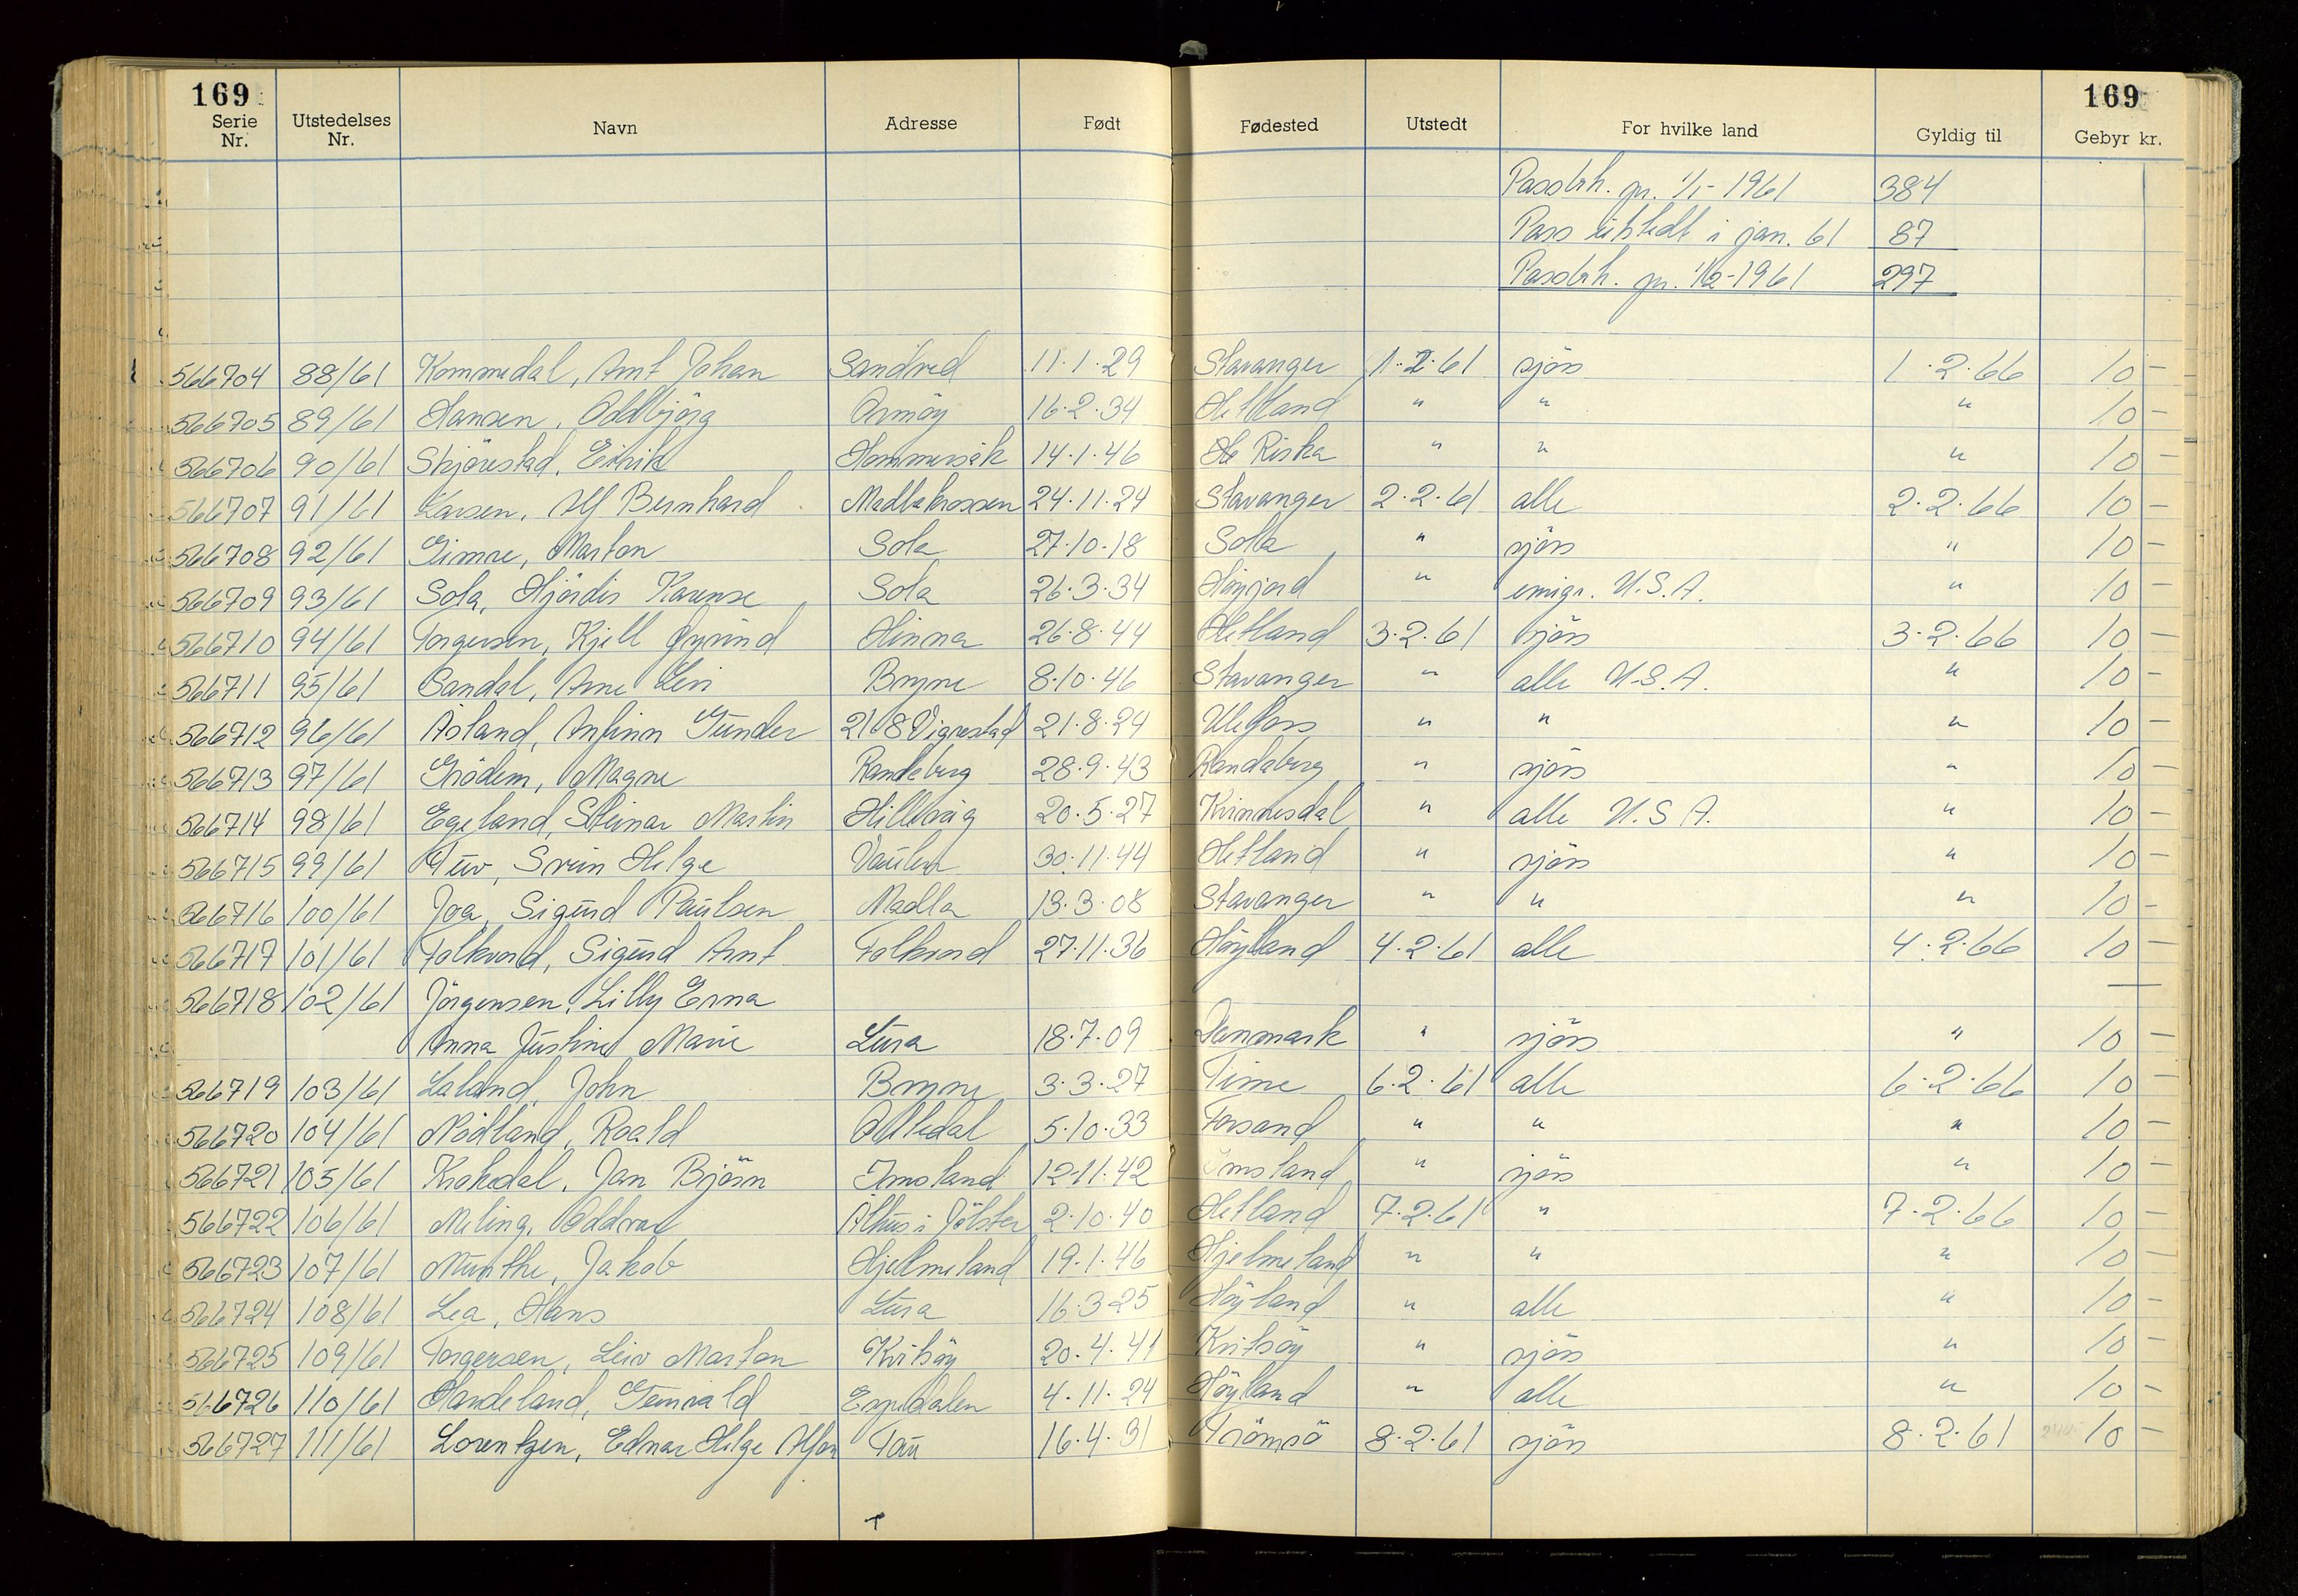 169 169
Serie Nr. Utstedelses Nr. Navn Adresse Født Fødested Utstedt For hvilke land Gyldig til Gebyr kr.
Passbh. pr. 1/1-1961 384
Pass utstedt i jan. 61 87
Passbh. pr. 1/2-1961 297
566704 88/61 Kommedal, Arnt Johan Sandved 11.1.29 Stavanger 1.2.61 sjøss 1.2.66 10 -
566705 89/61 Hansen, Oddbjörg Ormöy 16.2.34 Hetland " " " 10 -
566706 90/61 Skjörestad, Eirik Hommersåk 14.1.46 Riska " " " 10 -
566707 91/61 Larsen, Alf Bernhard Madlakrossen 24.11.24 Stavanger 2.2.61 alle 2.2.66 10 -
566708 92/61 Gimre, Marton Sola 27.10.18 Sola " sjöss " 10 -
566709 93/61 Sola, Hjördis Karense Sola 26.3.34 Höyjord " emigr. U.S.A. " 10 -
566710 94/61 Torgersen, Kjell Øyvind Hinna 26.8.44 Hetland 3.2.61 sjöss 3.2.66 10 -
566711 95/61 Sandal, Arne Levi Bryne 8.10.46 Stavanger " alle U.S.A. " 10 -
566712 96/61 Åsland, Anfinn Gunder 2108 Vigrestad 21.8.24 Ulefoss " " " 10 -
566713 97/61 Grödem, Magne Randaberg 28.9.43 Randaberg " sjöss " 10 -
566714 98/61 Egeland, Steinar Martin Hillevåg 20.5.27 Kvinnesdal " alle U.S.A. " 10 -
566715 99/61 Tuv, Svein Helge Vaulen 30.11.44 Hetland " sjöss " 10 -
566716 100/61 Joa, Sigurd Paulsen Madla 13.3.08 Stavanger " " " 10 -
566717 101/61 Folkvord, Sigurd Arnt Folkvord 27.11.36 Höyland 4.2.61 alle 4.2.66 10 -
566718 102/61 Jörgensen, Lilly Erna
Anna Justine Marie Lura 18.7.09 Danmark " sjöss " 10 -
566719 103/61 Laland, John Bryne 3.3.27 Time 6.2.61 alle 6.2.66 10 -
566720 104/61 Nödland, Roald Oltedal 5.10.33 Forsand " " " 10 -
566721 105/61 Krakedal, Jan Björn Imsland 12.11.42 Imsland " sjöss " 10 -
566722 106/61 Meling, Oddvar Ålhus i Jölster 2.10.40 Hetland 7.2.61 " 7.2.66 10 -
566723 107/61 Munthe, Jakob Hjelmeland 19.1.46 Hjelmeland " " " 10 -
566724 108/61 Lea, Hans Lura 16.3.25 Höyland " alle " 10 -
566725 109/61 Torgersen, Leiv Marton Kvitsöy 20.4.41 Kvitsöy " sjöss " 10 -
566726 110/61 Haudeland, Espedalen 4.11.24 Höyland " alle " 10 -
566727 111/61 Lorentzen, Edmar Helge Alfon Tau 16.4.31 Tromsö 8.2.61 sjöss 8.2.61 10 -